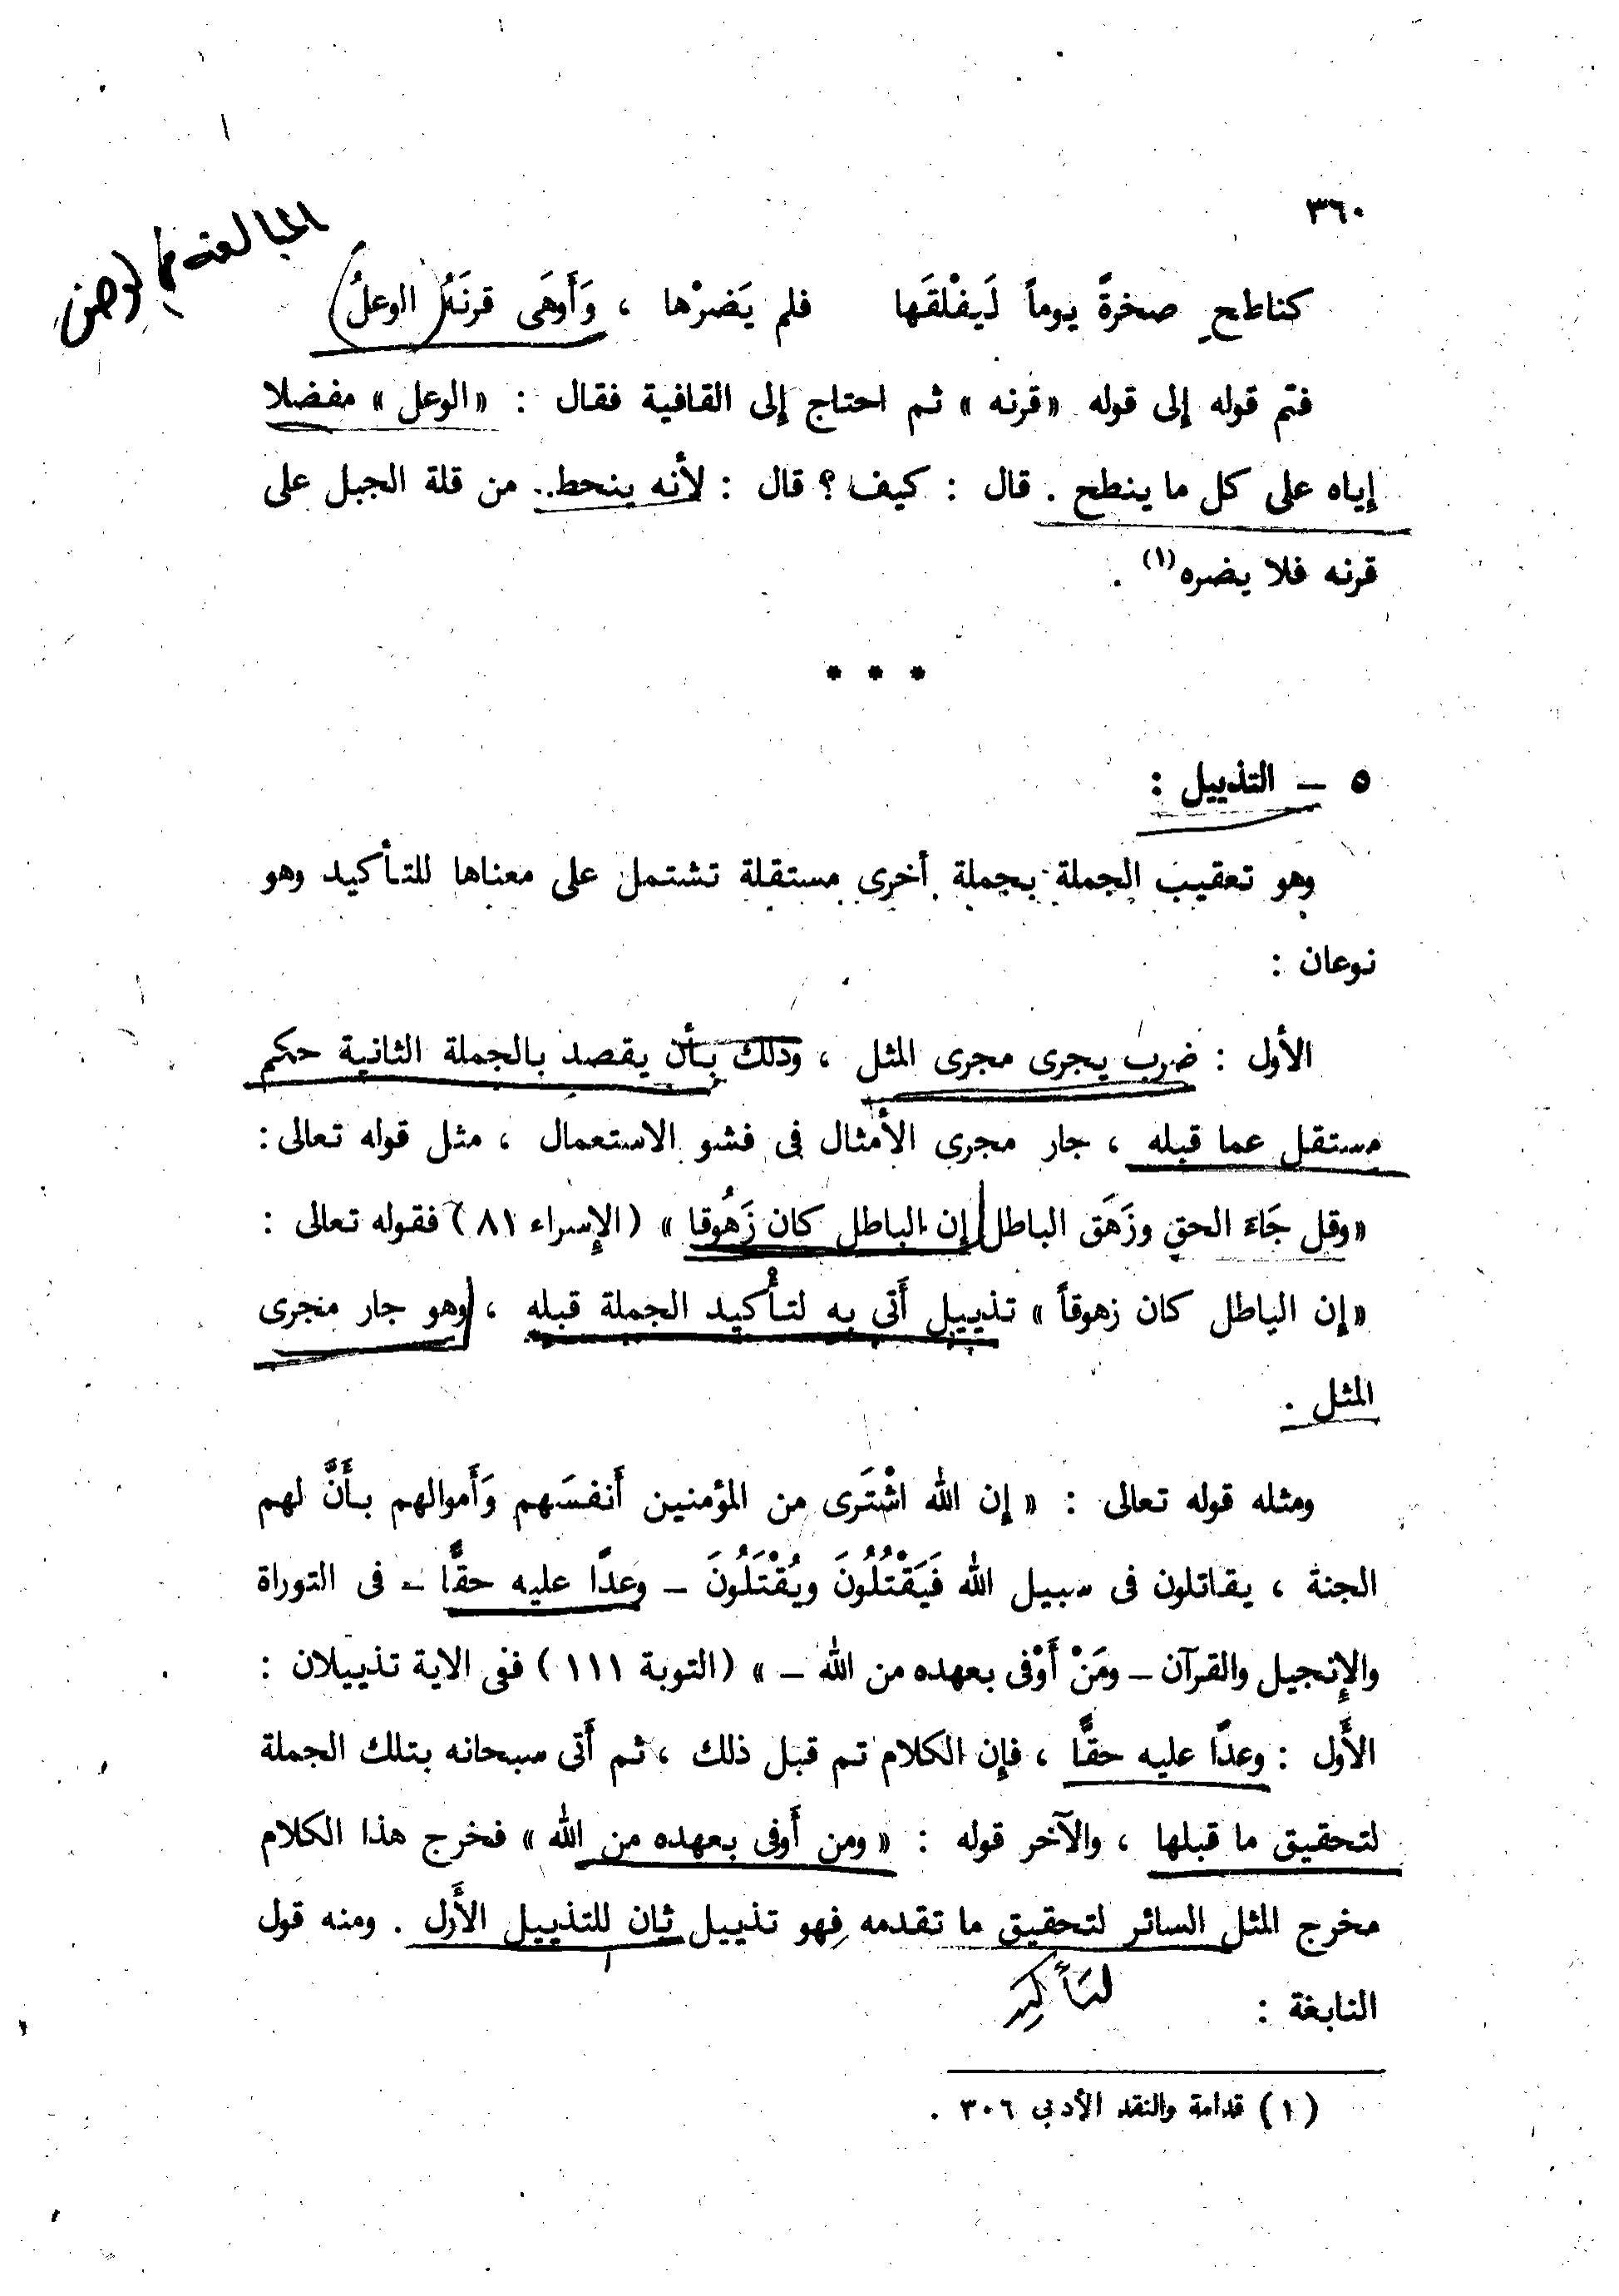 ٣٦٠
كناطحِ صخرةً يوماً لَيفْلقَها فلم يَضرْها ، وَأَوهَى قرنَهُ (الوعلُ)
فتم قوله إلى قوله «قرنه» ثم احتاج إلى القافية فقال : «الوعل» مفضلا
إياه على كل ما ينطح . قال : كيف ؟ قال : لأنه ينحط.. من قلة الجبل على
قرنه فلا يضره(١) .
* * *
٥ – التذييل :
وهو تعقيب الجملة بجملة أخرى مستقلة تشتمل على معناها للتأكيد وهو
نوعان :
الأول : ضرب يجرى مجرى المثل ، وذلك بأن يقصد بالجملة الثانية حكم
مستقل عما قبله ، جار مجرى الأمثال فى فشو الاستعمال ، مثل قوله تعالى :
«وقل جَاءَ الحق وزَهَق الباطل إن الباطل كان زَهُوقا» (الإسراء ٨١) فقوله تعالى :
«إن الباطل كان زهوقاً» تذييل أَتى به لتأكيد الجملة قبله ، وهو جار مجرى
المثل .
ومثله قوله تعالى : «إن الله اشْتَرى من المؤمنين أَنفسَهم وَأَموالهم بأَنَّ لهم
الجنة ، يقاتلون فى سبيل الله فَيَقْتُلُونَ ويُقْتَلُونَ – وعدًا عليه حقًّا – فى التوراة
والإنجيل والقرآن – ومَنْ أَوْفى بعهده من الله –» (التوبة ١١١) ففى الاية تذييلان :
الأَول : وعدًا عليه حقًّا ، فإن الكلام تم قبل ذلك ، ثم أَتى سبحانه بتلك الجملة
لتحقيق ما قبلها ، والآخر قوله : «ومن أَوفى بعهده من الله» فخرج هذا الكلام
مخرج المثل السائر لتحقيق ما تقدمه فهو تذييل ثان للتذييل الأَول . ومنه قول
النابغة :
لتأكيد
(١) قدامة والنقد الأدبى ٣٠٦ .